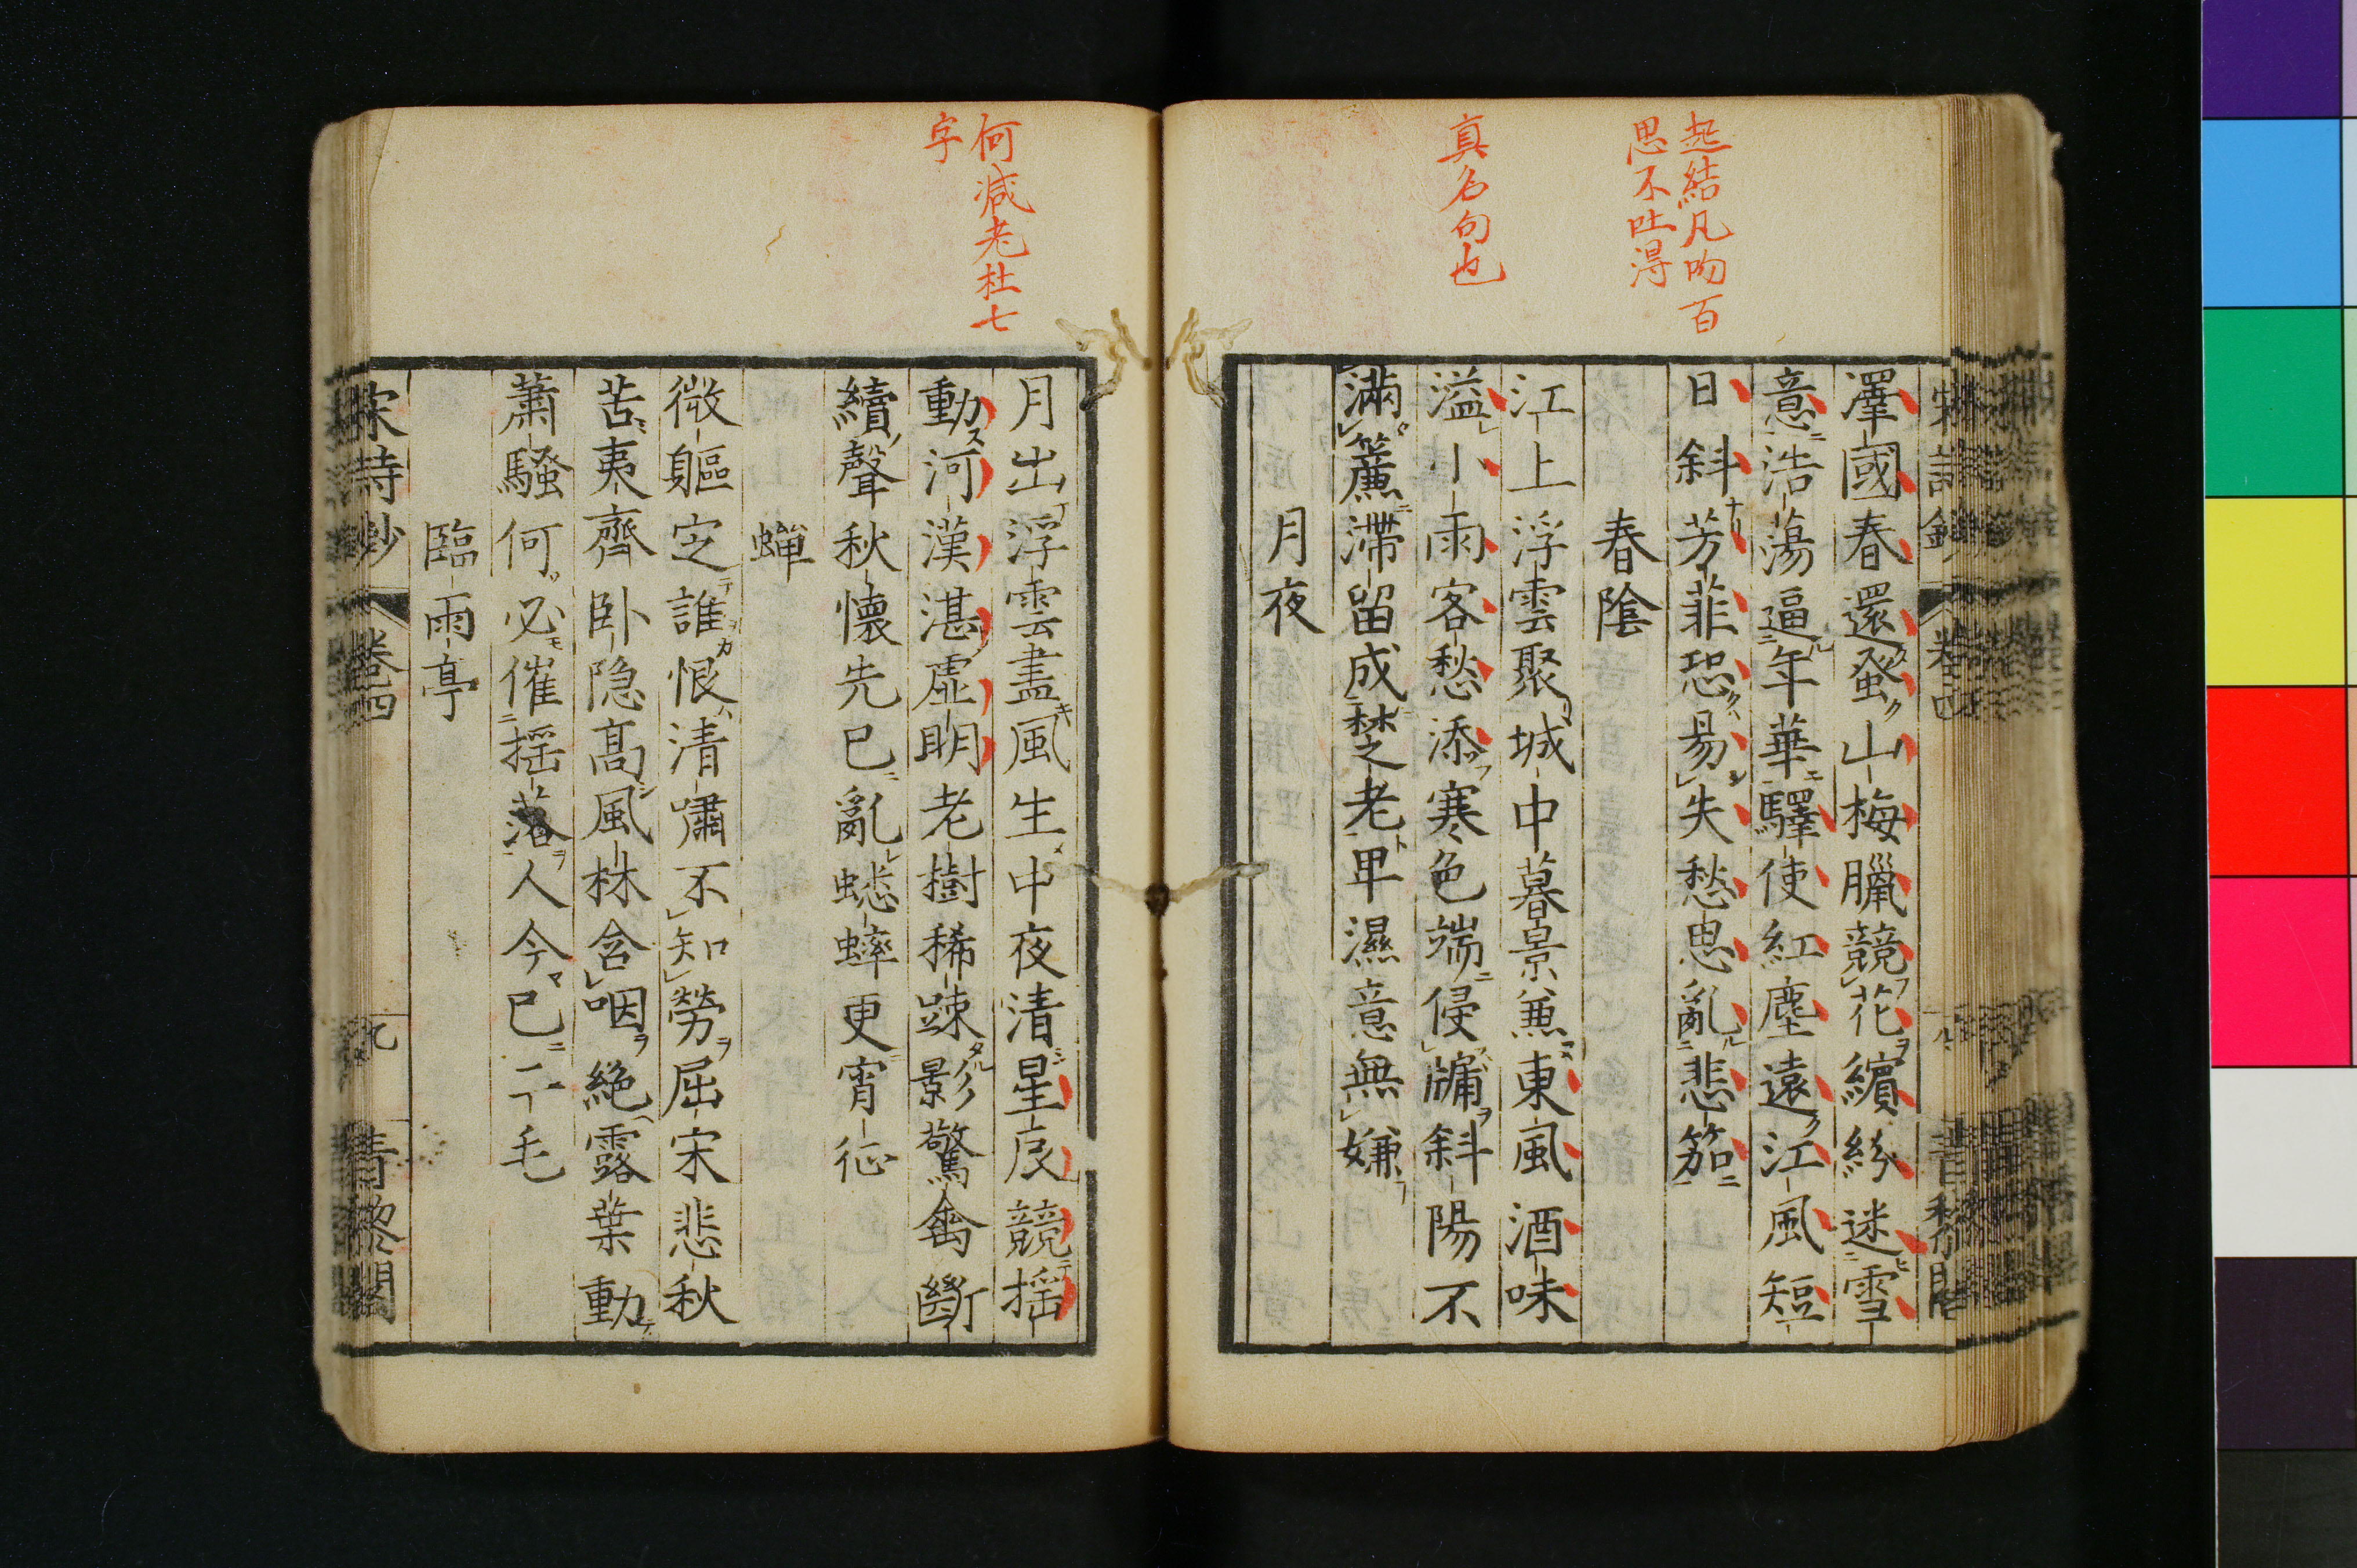 起結凡吻百
思不吐得
真名句也
澤國春還發山梅臘競花繽紛迷雪
意浩蕩逼年華驛使紅塵遠江風短
日斜芳菲恐易失愁思亂悲笳
春陰
江上浮雲聚城中暮景兼東風酒味
溢小雨客愁添寒色端侵牖斜陽不
滿簾滯留成楚老卑濕意無嫌
月夜
何減老杜七
字
月出浮雲盡風生中夜清星辰競搖
動河漢湛虛明老樹稀疎影驚禽斷
續聲秋懷先已亂蟋蟀更宵征
蝉
微軀定誰恨清嘯不知勞屈宋悲秋
苦夷齊卧隐髙風林含咽絶露葉動
蕭騷何必催揺落人今已二毛
臨雨亭
宋詩鈔 卷四 九 青藜閣